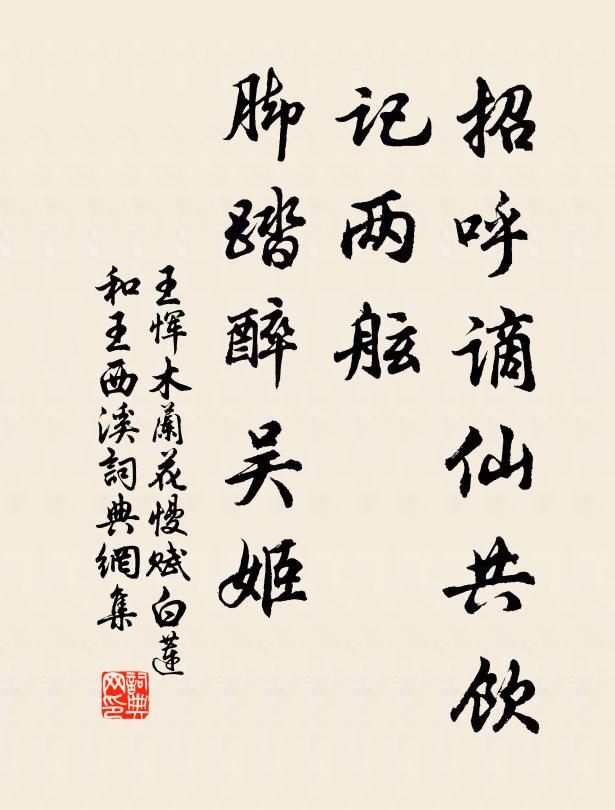 招呼谪仙共饮
记两舷
脚踏醉吴姬
王恽木蘭花慢赋白蓮
和王西溪詞典網集
詞典网印